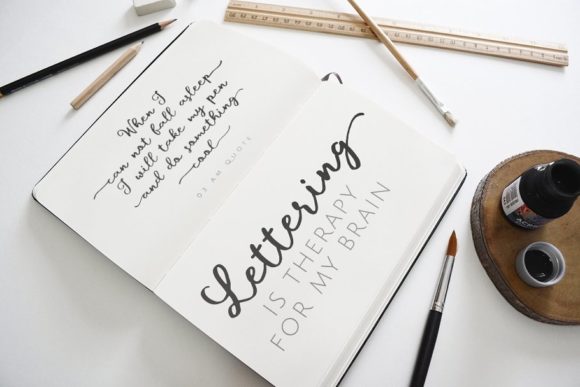 When I
can not fall asleep
I will take my pen
and do something
cool
03 AM QUOTE
Lettering
IS THERAPY
FOR MY BRAIN